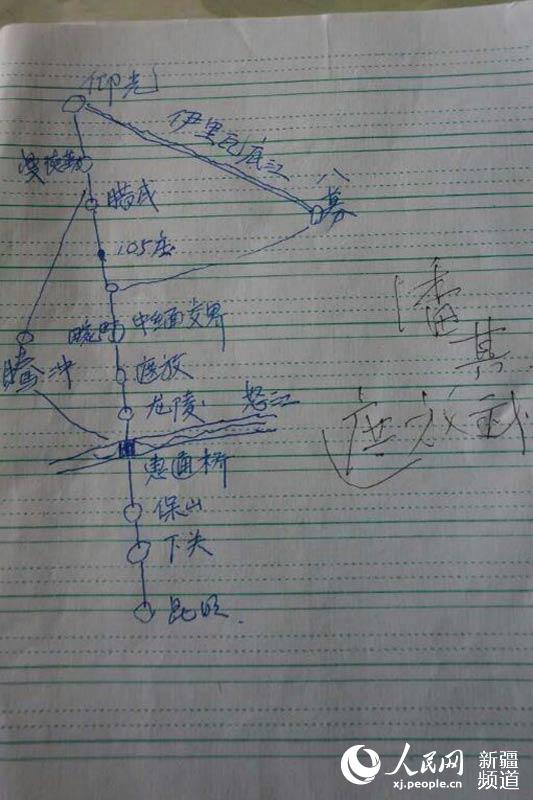 仰光
伊里瓦底江
曼德勒
八莫
腊戌
105座
畹町
中缅交界
腾冲
遮放
龙陵
怒江
惠通桥
保山
下关
昆明
潘
其
人民网
xj.people.cn
新疆
频道